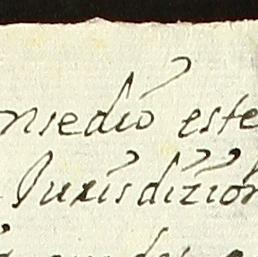 nsedio este
Jurisdizion